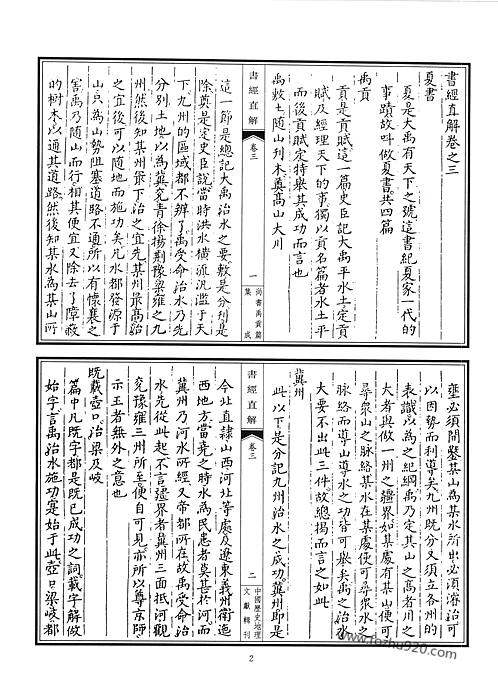 書經直解卷之三
夏書
夏是大禹有天下之號這書紀夏家一代的
事蹟故叫做夏書共四篇
禹貢
貢是貢賦這一篇史臣記大禹平水土定貢
賦及經理天下的事獨以貢名篇者水土平
而後貢賦定特舉其成功而言也
禹敷土隨山刊木奠高山大川
書經直解
卷三
一
尚書禹貢篇
集成
這一節是總記大禹治水之要敷是分刊是
除奠是定史臣說當時洪水橫流汎濫于天
下九州的區域都不辨了禹受命治水乃先
分別土地以為冀兗青徐揚荊豫梁雍之九
州然後知某州最下治之宜先某州最高治
之宜後可以隨地而施功矣凡水都發源于
山只為山勢阻塞道路不通所以有懷襄之
害禹乃隨山而行相其便宜又除去了障蔽
的樹木以通其道路然後知某水為某山所
壅必須開鑿某山為某水所出必須濬治可
以因勢而利導矣九州既分又須立各州的
表識以為之紀綱禹乃定其山之高者川之
大者使與做一州之疆界如某處有某山便可
尋眾山之脉絡某水在某處便可尋眾水之
脉絡而導山導水之功皆可舉矣禹之治水
大要不出此三件故總揭而言之如此
冀州
此以下是分記九州治水之成功冀州即是
書經直解
卷三
二
中國歷史地理
文獻輯刊
今北直隸山西河北等處及遼東義州衛迤
西地方當堯之時水為民患者莫甚於河而
冀州乃河水所經又帝都所在故禹受命治
水先從此起不言疆界者冀州三面抵河觀
兗豫雍三州所至便自可見亦所以尊京師
示王者無外之意也
既載壺口治梁及岐
篇中凡既字都是既已成功之詞載字解做
始字言禹治水施功寔始于此壺口梁岐都
2
www.fuzhou920.com